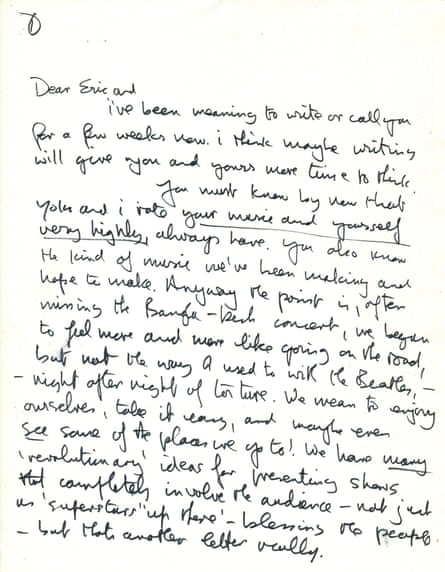 Dear Eric and
i've been meaning to write or call you
for a few weeks now. i think maybe writing
will give you and yours more time to think.
You must know by now that
Yoko and i rate your music and yourself
very highly, always have. You also know
the kind of music we've been making and
hope to make. Anyway the point is, after
missing the Bangla-Desh concert, we began
to feel more and more like going on the road,
but not the way I used to with the Beatles, -
- night after night of torture. We mean to enjoy
ourselves, take it easy, and maybe even
see some of the places we go to! We have many
'revolutionary' ideas for presenting shows
that completely involve the audience - not just
as 'superstars' 'up there' - blessing the people.
- but thats another letter really.